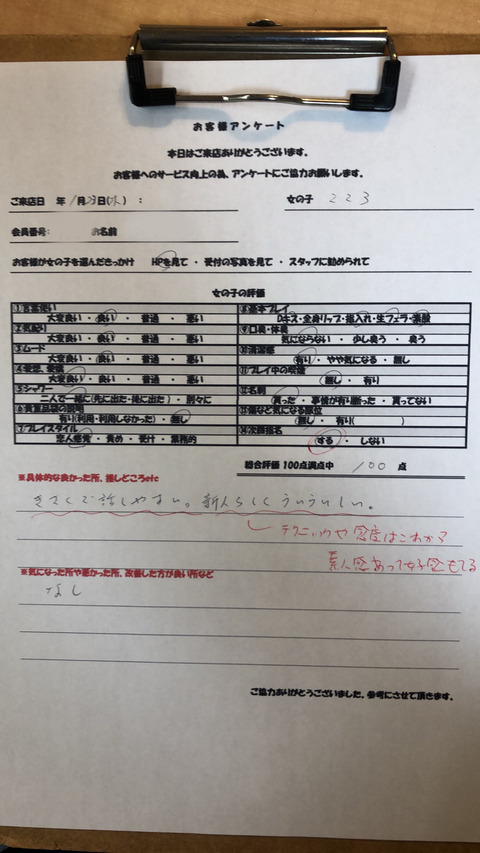 お客様アンケート
本日はご来店ありがとうございます。
お客様へのサービス向上の為、アンケートにご協力お願いします。
ご来店日 年 1月23日(水) :
女の子 223
会員番号: お名前
お客様が女の子を選んだきっかけ HPを見て ・ 受付の写真を見て ・ スタッフに勧められて
女の子の評価
①言葉使い
大変良い ・ 良い ・ 普通 ・ 悪い
②気配り
大変良い ・ 良い ・ 普通 ・ 悪い
③ムード
大変良い ・ 良い ・ 普通 ・ 悪い
④愛想、愛嬌
大変良い ・ 良い ・ 普通 ・ 悪い
⑤シャワー
二人で一緒に(先に出た・後に出た) ・ 別々に
⑥貴重品袋の説明
有り(利用・利用しなかった) ・ 無し
⑦プレイスタイル
恋人感覚 ・ 責め ・ 受け ・ 業務的
⑧基本プレイ
Dキス・全身リップ・指入れ・生フェラ・素股
⑨口臭・体臭
気にならない ・ 少し臭う ・ 臭う
⑩清潔感
有り ・ やや気になる ・ 無し
⑪プレイ中の喫煙
無し ・ 有り
⑫名刺
貰った ・ 事情が有り断った ・ 貰ってない
⑬傷など気になる部位
無し ・ 有り( )
⑭次回指名
する ・ しない
総合評価 100点満点中 100 点
※具体的な良かった所、推しどころetc
きさくで話しやすい。新人らしくういういしい。
テクニックや感度はこれから
素人感あって女子感もてる
※気になった所や悪かった所、改善した方が良い所など
なし
ご協力ありがとうございました。参考にさせて頂きます。